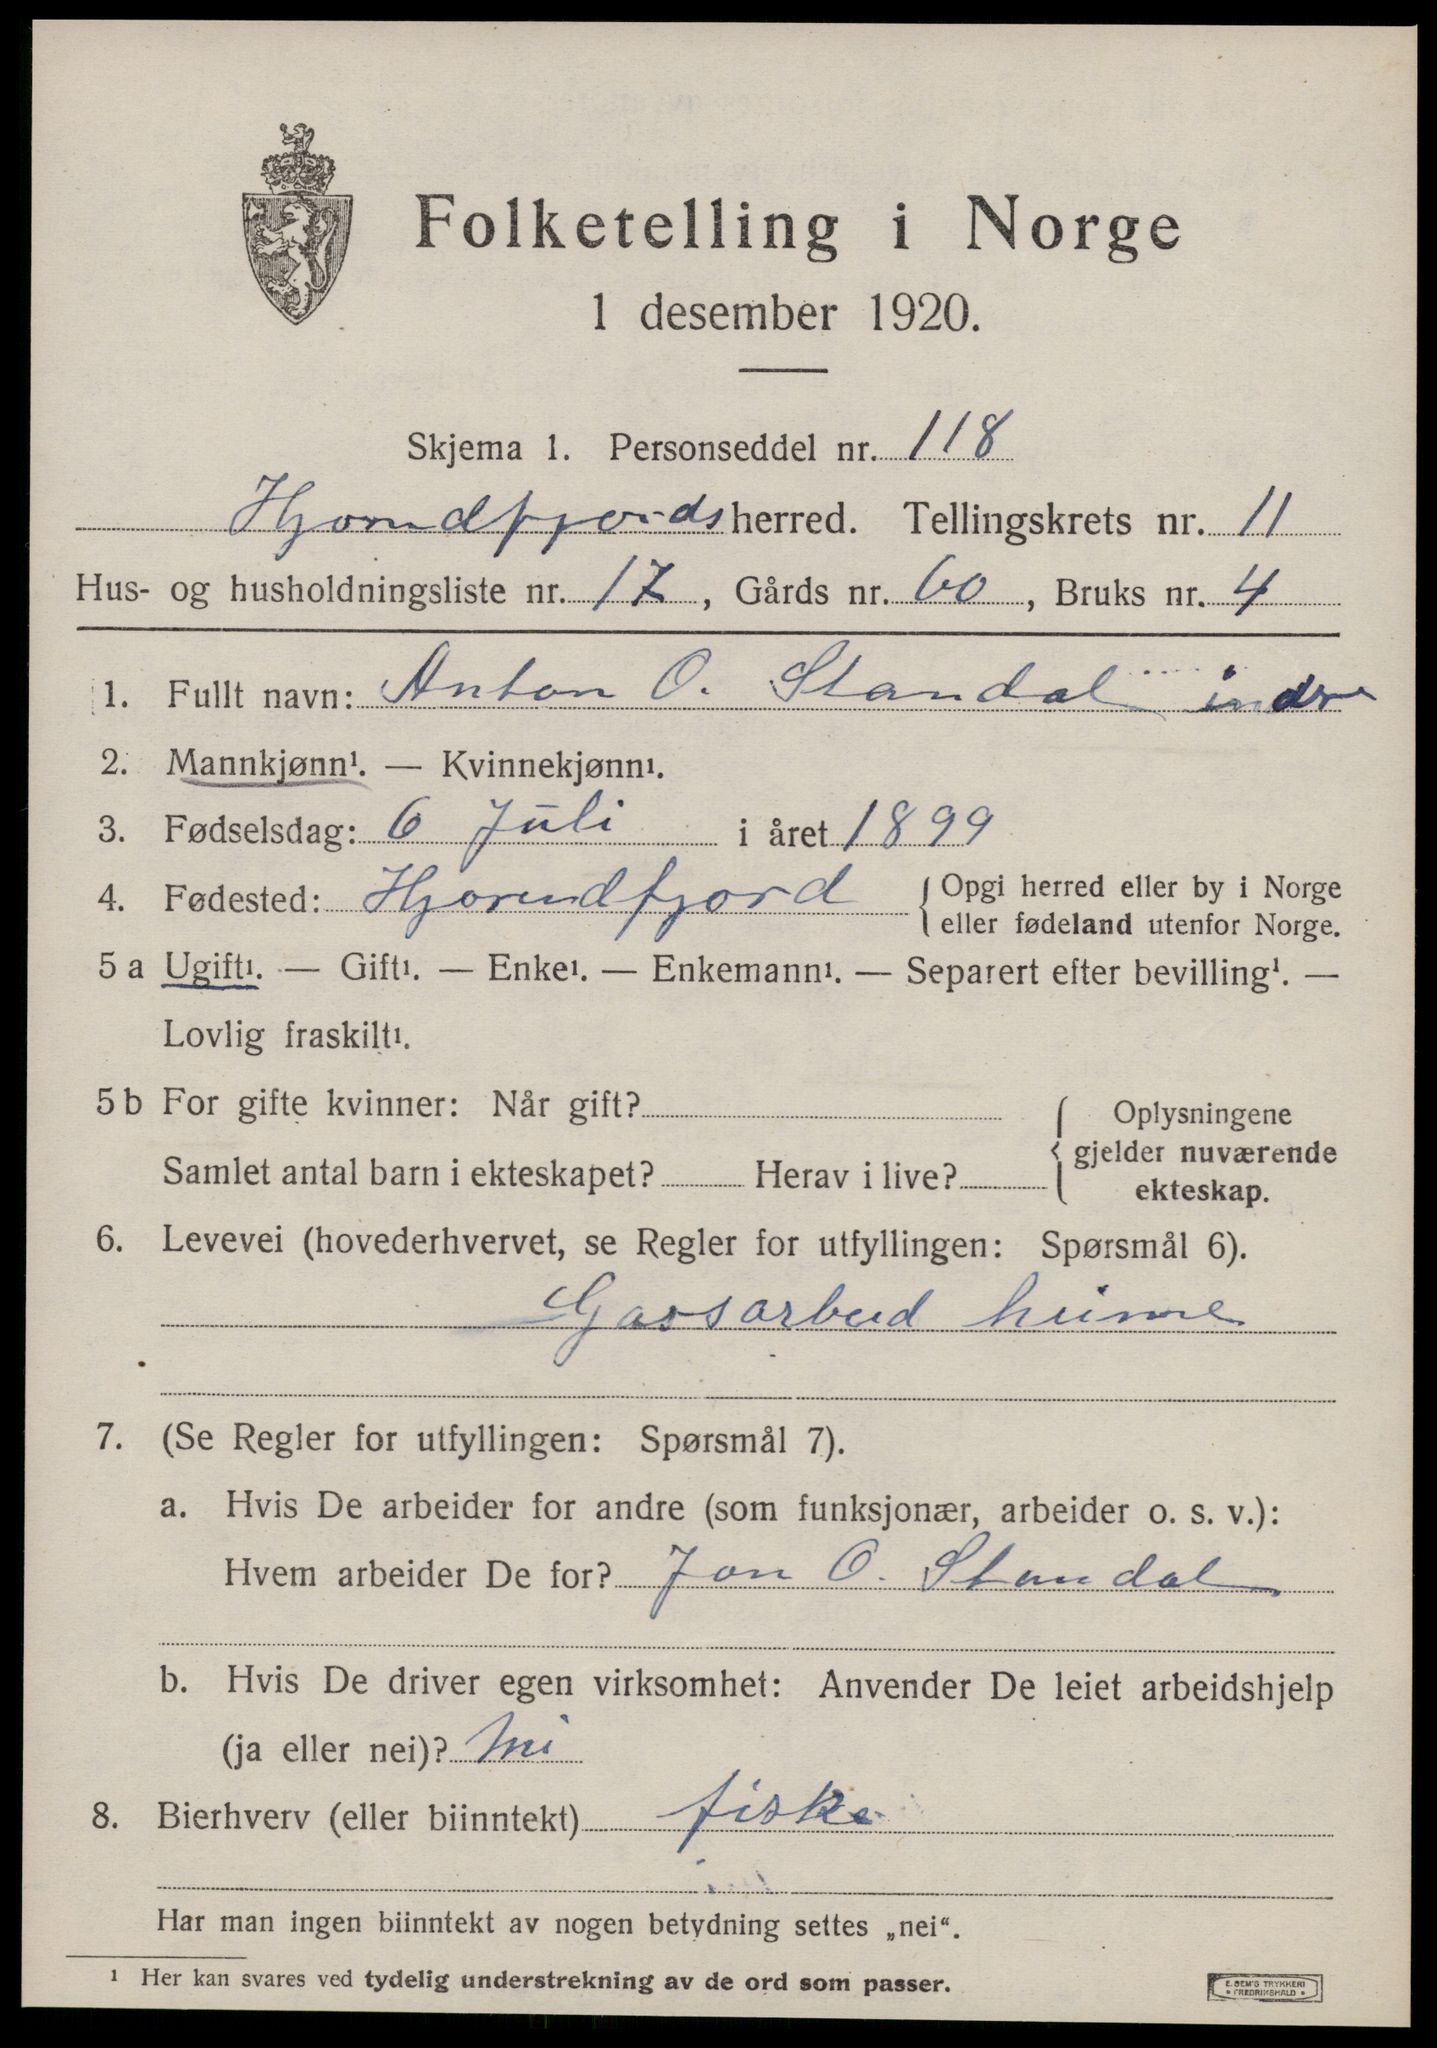 Folketelling i Norge
1 desember 1920.
Skjema 1. Personseddel nr. 118
Hjorundfjords herred. Tellingskrets nr. 11
Hus- og husholdningsliste nr. 17, Gårds nr. 60, Bruks nr. 4
1. Fullt navn: Anton O. Standal indre
2. Mannkjønn¹. — Kvinnekjønn¹.
3. Fødselsdag: 6 Juli i året 1899
4. Fødested: Hjorundfjord { Opgi herred eller by i Norge
eller fødeland utenfor Norge.
5 a Ugift¹. — Gift¹. — Enke¹. — Enkemann¹. — Separert efter bevilling¹. —
Lovlig fraskilt¹.
5 b For gifte kvinner: Når gift?
Samlet antal barn i ekteskapet? Herav i live?
{ Oplysningene
gjelder nuværende
ekteskap.
6. Levevei (hovederhvervet, se Regler for utfyllingen: Spørsmål 6).
Garsarbeid heime
7. (Se Regler for utfyllingen: Spørsmål 7).
a. Hvis De arbeider for andre (som funksjonær, arbeider o. s. v.):
Hvem arbeider De for? Jon O. Standal
b. Hvis De driver egen virksomhet: Anvender De leiet arbeidshjelp
(ja eller nei)? nei
8. Bierhverv (eller biinntekt) fiske
Har man ingen biinntekt av nogen betydning settes „nei“.
¹ Her kan svares ved tydelig understrekning av de ord som passer.
E. SEM'S TRYKKERI
FREDRIKSHALD